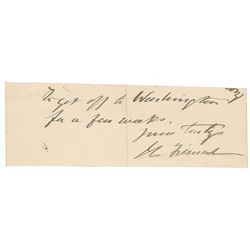 To get off to Washington
for a few weeks.
yours truly